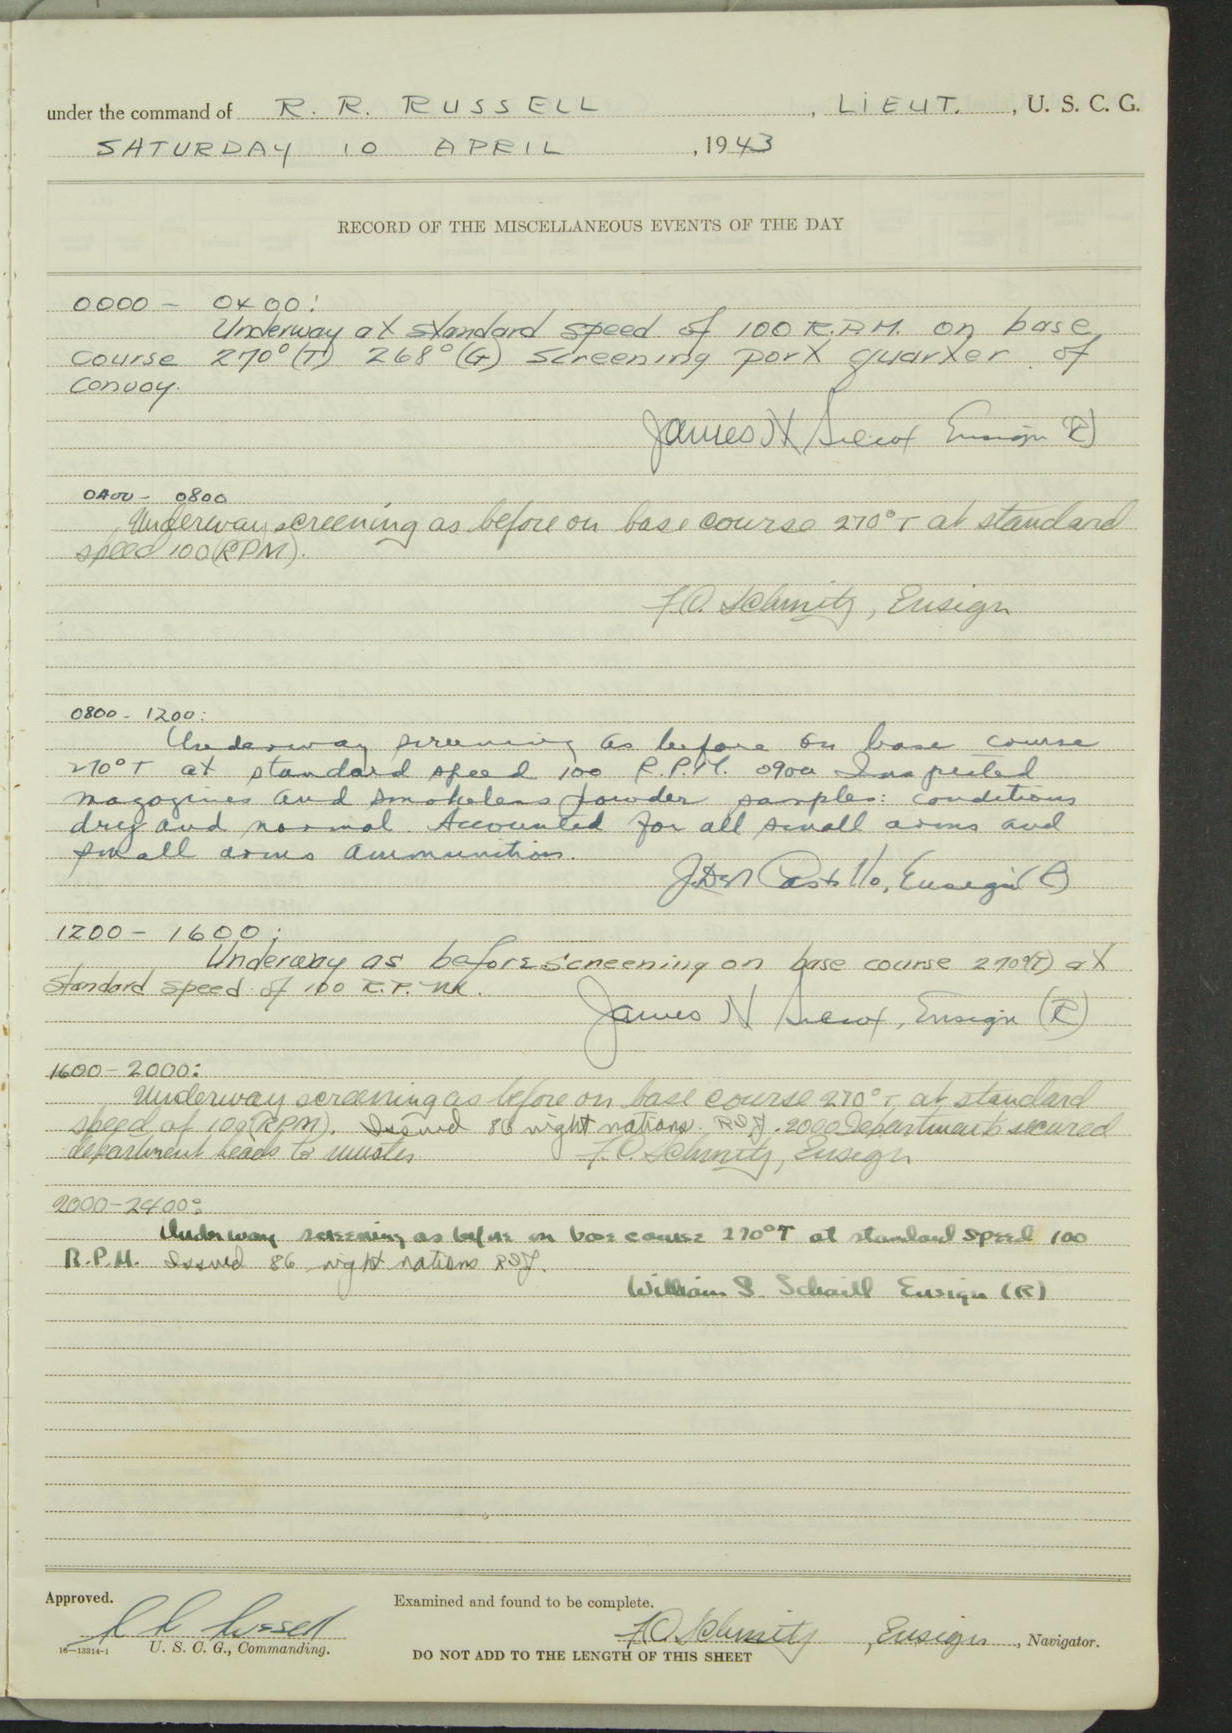 under the command of R. R. RUSSELL, LIEUT., U. S. C. G.
SATURDAY 10 APRIL, 1943
RECORD OF THE MISCELLANEOUS EVENTS OF THE DAY
0000 - 0400:
Underway at standard speed of 100 R.P.M. on base
course 270° (T) 268° (G) screening port quarter of
convoy.
James N Ensign (R)
0400 - 0800
Underway screening as before on base course 270° T at standard
speed 100 (RPM).
F.O. Schmitz, Ensign
0800 - 1200:
Underway screening as before on base course
270° T at standard speed 100 R.P.M. 0900 Inspected
magazines and smokeless powder samples: conditions
dry and normal. Accounted for all small arms and
small arms ammunition.
Castillo, Ensign (R)
1200 - 1600:
Underway as before screening on base course 270°(T) at
standard speed of 100 R.P.M.
James N, Ensign (R)
1600 - 2000:
Underway screening as before on base course 270° T at standard
speed of 100 (RPM). Issued 86 night rations. 2000 Departments secured
department heads to muster
F.O. Schmitz, Ensign
2000 - 2400:
Underway screening as before on base course 270° T at standard speed 100
R.P.M. Issued 86 night rations
William S. Schaill Ensign (R)
Approved.
R R Russell
U. S. C. G., Commanding.
16—13314-1
Examined and found to be complete.
F.O. Schmitz, Ensign, Navigator.
DO NOT ADD TO THE LENGTH OF THIS SHEET